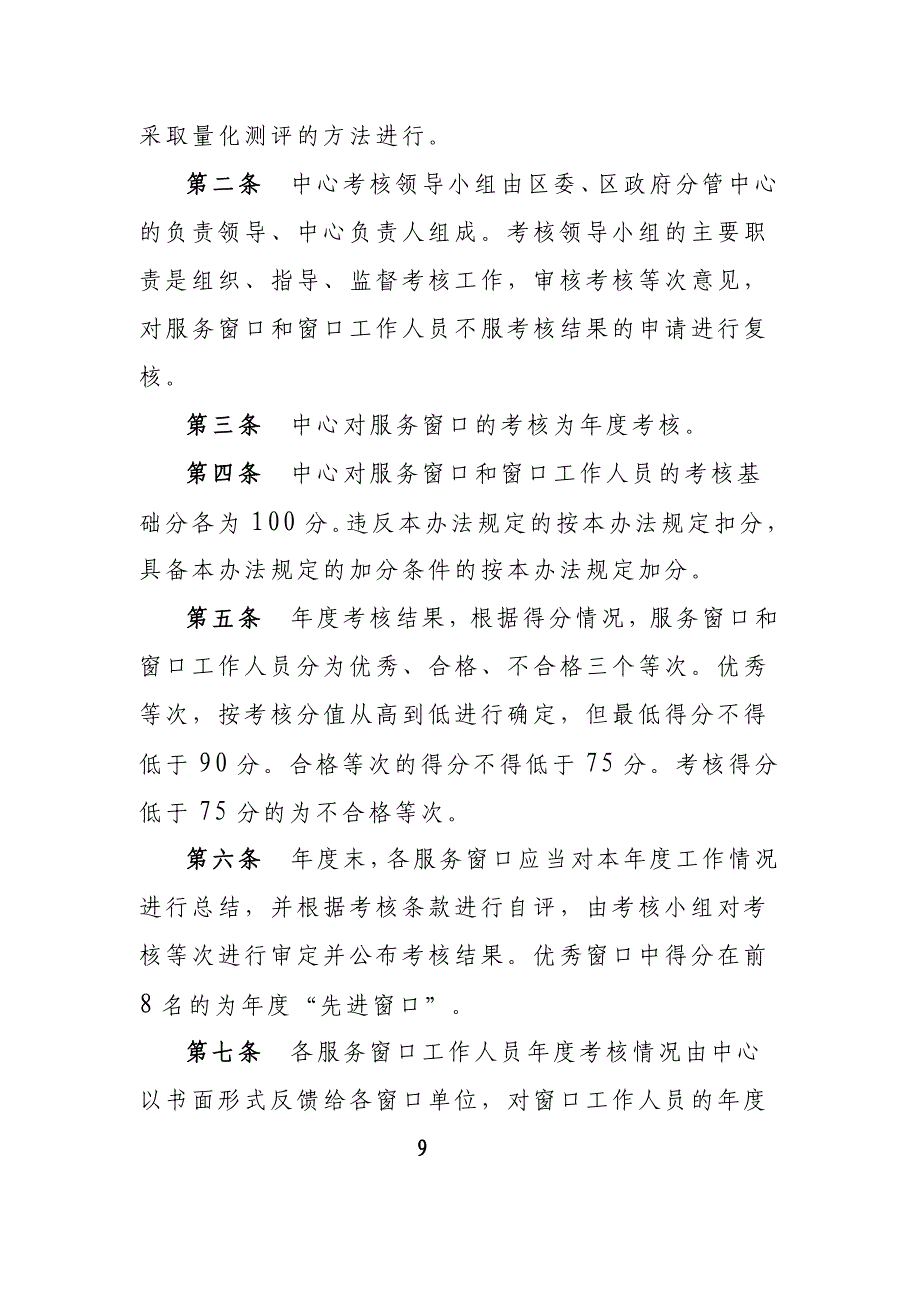 采取量化测评的方法进行。
第二条　中心考核领导小组由区委、区政府分管中心
的负责领导、中心负责人组成。考核领导小组的主要职
责是组织、指导、监督考核工作，审核考核等次意见，
对服务窗口和窗口工作人员不服考核结果的申请进行复
核。
第三条　中心对服务窗口的考核为年度考核。
第四条　中心对服务窗口和窗口工作人员的考核基
础分各为 100 分。违反本办法规定的按本办法规定扣分，
具备本办法规定的加分条件的按本办法规定加分。
第五条　年度考核结果，根据得分情况，服务窗口和
窗口工作人员分为优秀、合格、不合格三个等次。优秀
等次，按考核分值从高到低进行确定，但最低得分不得
低于 90 分。合格等次的得分不得低于 75 分。考核得分
低于 75 分的为不合格等次。
第六条　年度末，各服务窗口应当对本年度工作情况
进行总结，并根据考核条款进行自评，由考核小组对考
核等次进行审定并公布考核结果。优秀窗口中得分在前
8 名的为年度“先进窗口”。
第七条　各服务窗口工作人员年度考核情况由中心
以书面形式反馈给各窗口单位，对窗口工作人员的年度
9